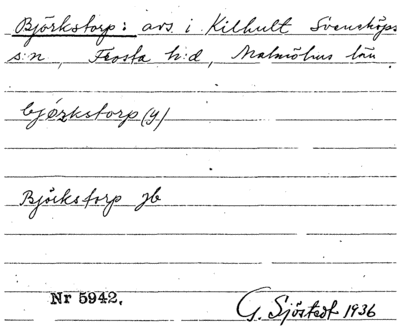 Björkstorp: avs. i Kilhult Svensköps
s:n, Frosta h:d, Malmöhus län
bjørkstorp (y)
Björkstorp jb
Nr 5942.
G. Sjöstedt 1936